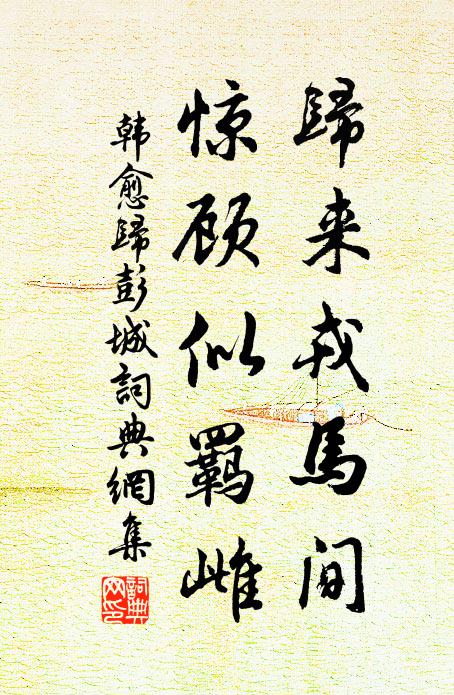 歸来戎馬间
惊顾似羁雌
韩愈歸彭城詞典網集
詞典网印